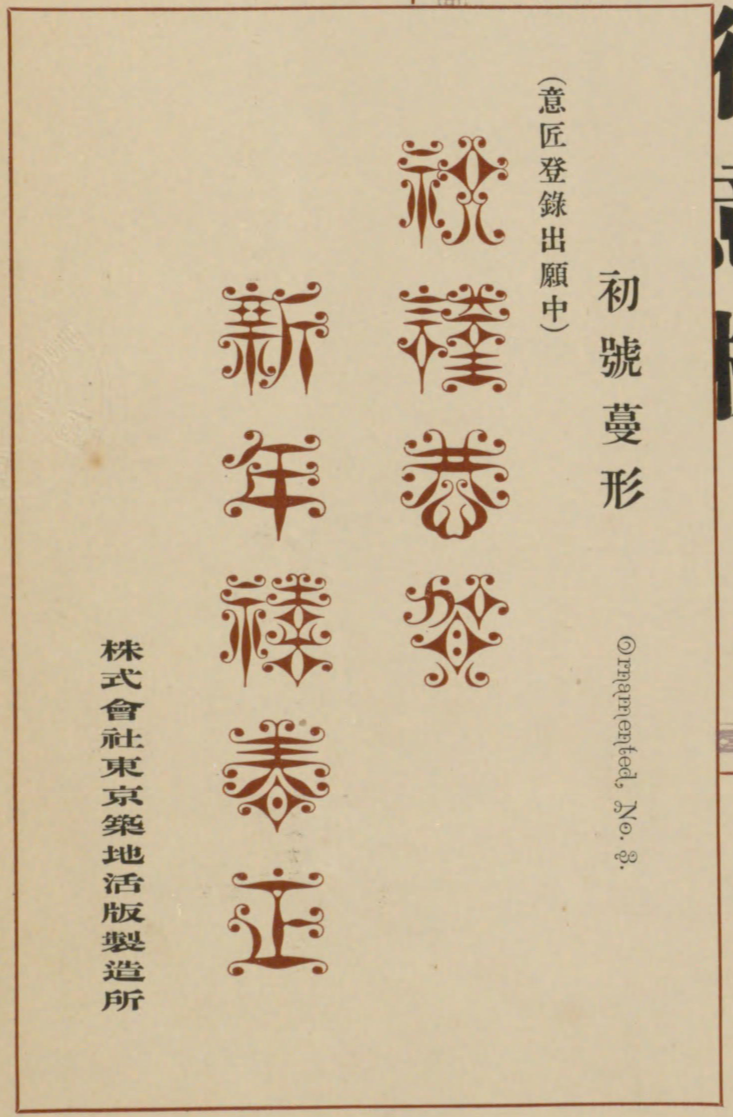 初號蔓形 Ornamented, No. 3.
(意匠登錄出願中)
祝謹恭賀
新年禧春正
株式會社東京築地活版製造所